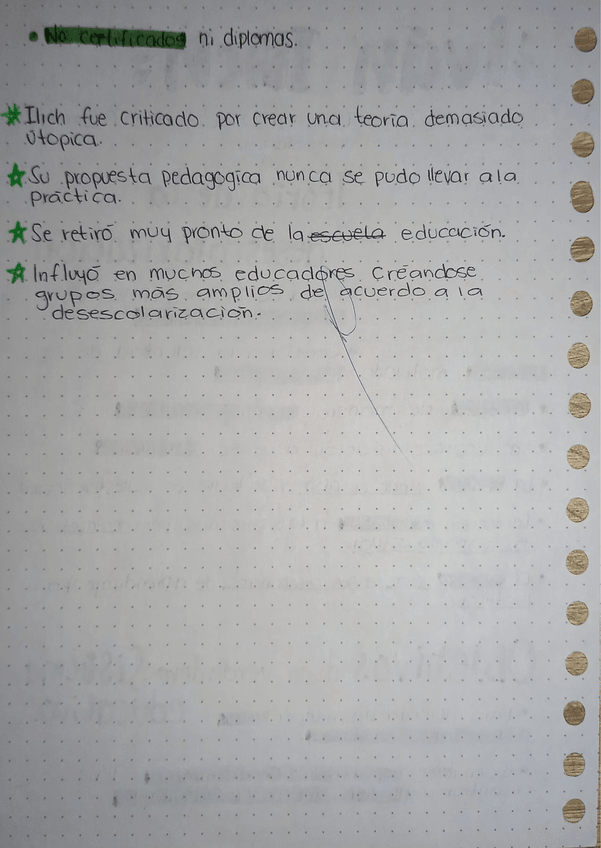 • No certificados ni diplomas.
Ilich fue criticado por crear una teoría demasiado
utopica.
Su propuesta pedagogica nunca se pudo llevar a la
práctica.
Se retiró muy pronto de la escuela educación.
Influyó en muchos educadores creandose
grupos más amplios de acuerdo a la
desescolarización.